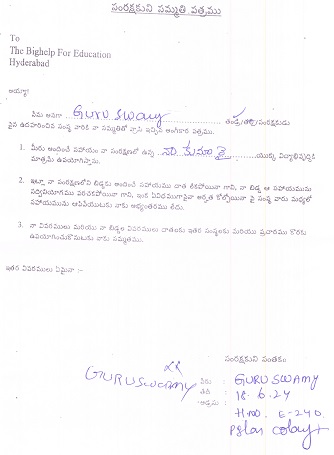 సంరక్షకుని సమ్మతి పత్రము
To
The Bighelp For Education
Hyderabad
అయ్యా!
నేను అనగా GURU SWAMY తండ్రి/తల్లి/సంరక్షకుడు
పైన ఉదహరించిన సంస్థ వారికి నా సమ్మతితో వ్రాసి ఇచ్చిన అంగీకార పత్రము.
1. మీరు అందించే సహాయం నా సంరక్షణలో ఉన్న నా కుమారై యొక్క విద్యాభివృద్ధికి
మాత్రమే ఉపయోగిస్తాను.
2. ఇట్లు నా సంరక్షణలోని బిడ్డకు అందించే సహాయము దాత లేకపోయినా గాని, నా బిడ్డ ఆ సహాయమును
సద్వినియోగము పరచకపోయినా గాని, ఇంక ఏవిధముగానైనా అర్హత కోల్పోయినా పై సంస్థ వారు మధ్యలో
సహాయమును ఆపివేయుటకు నాకు అభ్యంతరము లేదు.
3. నా వివరములు మరియు నా బిడ్డల వివరములు దాతలకు ఇతర సంస్థలకు మరియు ప్రచారము కొరకు
ఉపయోగించుకొనుటకు నాకు సమ్మతము.
ఇతర వివరములు ఏమైనా :-
సంరక్షకుని సంతకం
GURUSWAMY
పేరు : GURUSWAMY
తేది : 18.6.24
అడ్రసు : H.no. E-240